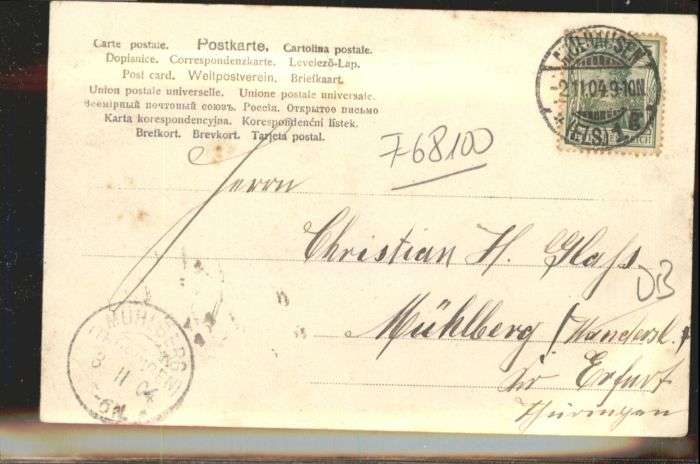 Carte postale. Postkarte. Cartolina postale.
Dopisnice. Correspondenzkarte. Levelező-Lap.
Post card. Weltpostverein. Briefkaart.
Union postale universelle. Unione postale universale.
Всемірный почтовый союзъ. Россія. Открытое письмо
Karta korespondencyjna. Korespondenční lístek.
Brefkort. Brevkort. Tarjeta postal.
MÜLHAUSEN
-2.11.04.9-10N.
* (ELS) 1 *
768100
Herrn
Christian H. Glaß
DB
Mühlberg /Wandersl.
Kr Erfurt
Thüringen
MÜHLBERG
3 11 04
-6N.